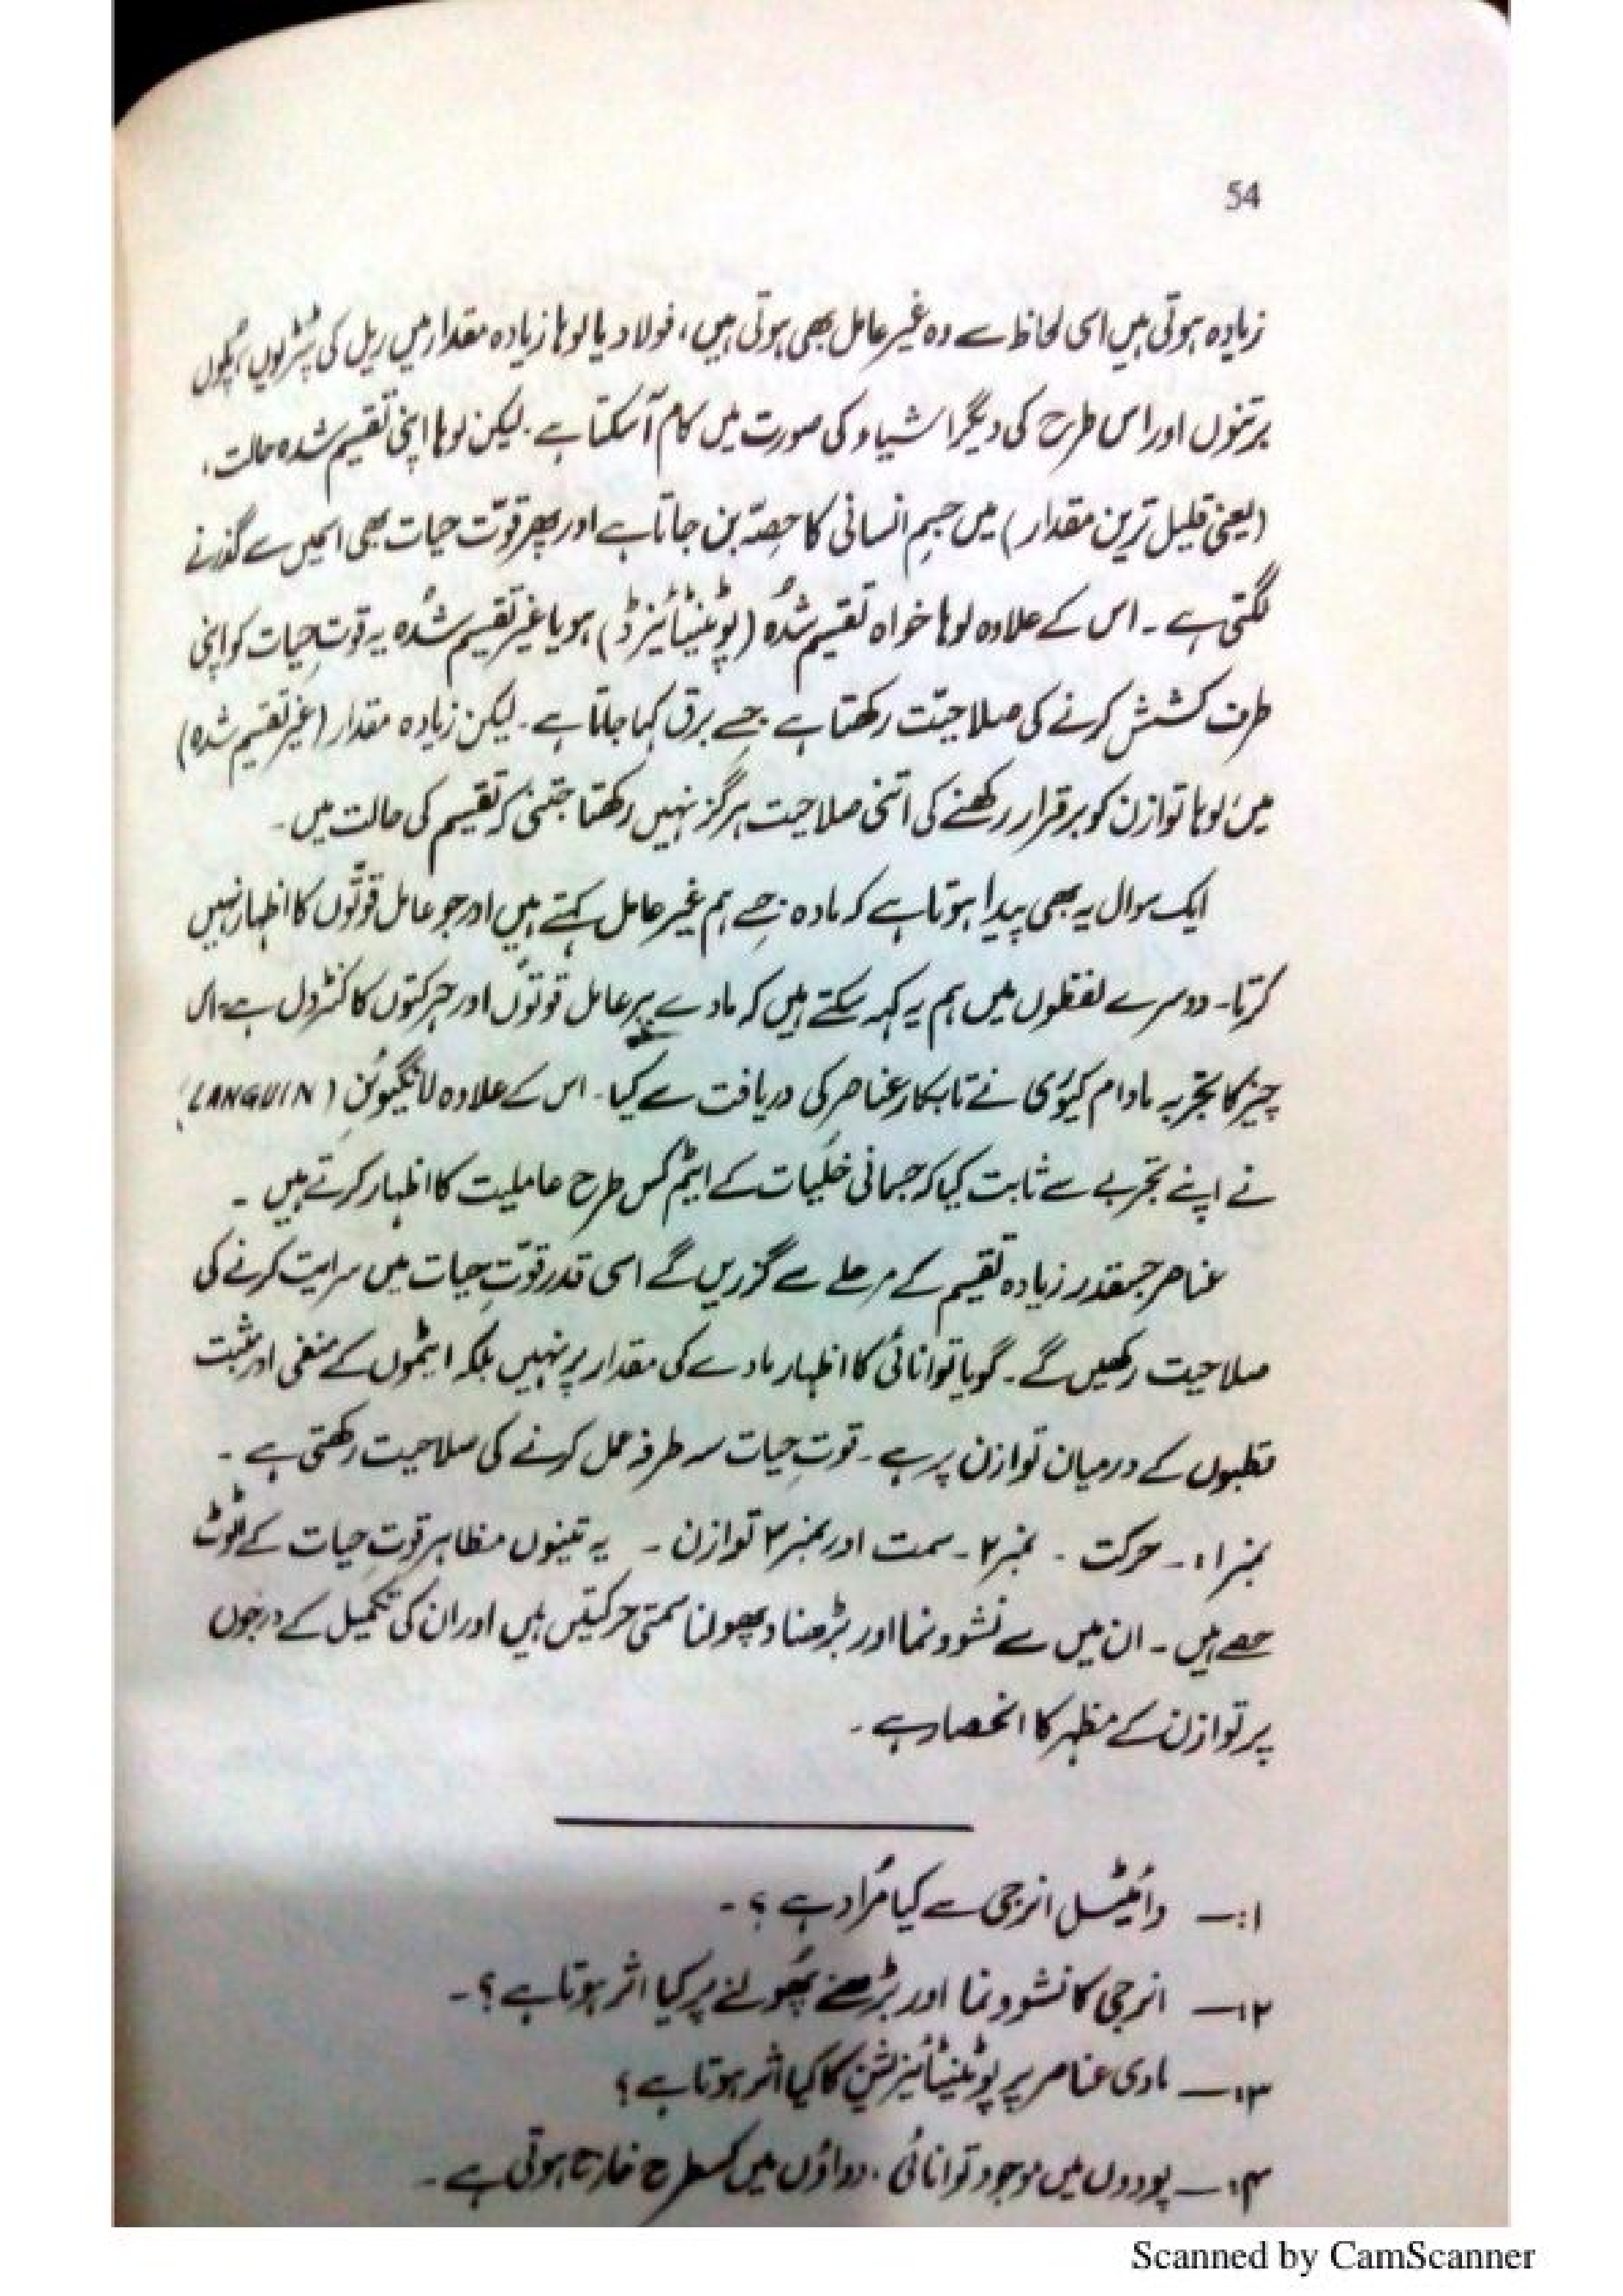 54
زیادہ ہوتی ہیں اسی لحاظ سے وہ غیر عامل بھی ہوتی ہیں، فولاد یا لوہا زیادہ مقدار میں ریل کی پٹڑیوں، پلوں
برتنوں اور اس طرح کی دیگر اشیاء کی صورت میں کام آسکتا ہے۔ لیکن لوہا اپنی تقسیم شدہ حالت،
(یعنی قلیل ترین مقدار) میں جسمِ انسانی کا حصّہ بن جاتا ہے اور پھر قوّت حیات بھی اسمیں سے گذرنے
لگتی ہے۔ اس کے علاوہ لوہا خواہ تقسیم شدُہ (پوٹینٹائیزڈ) ہو یا غیر تقسیم شُدہ یہ قوتِ حیات کو اپنی
طرف کشش کرنے کی صلاحیّت رکھتا ہے جسے برق کہا جاتا ہے۔ لیکن زیادہ مقدار (غیر تقسیم شدہ)
میں لوہا توازن کو برقرار رکھنے کی اتنی صلاحیت ہرگز نہیں رکھتا جتنی کہ تقسیم کی حالت میں۔
ایک سوال یہ بھی پیدا ہوتا ہے کہ مادہ جسے ہم غیر عامل کہتے ہیں اور جو عامل قوتّوں کا اظہار نہیں
کرتا۔ دوسرے لفظوں میں ہم یہ کہہ سکتے ہیں کہ مادے پر عامل قوتوں اور حرکتوں کا کنٹرول ہے۔ اس
چیز کا تجربہ مادام کیوُری نے تابکار عناصر کی دریافت سے کیا۔ اس کے علاوہ لانگیوُئن (LANGUIN)
نے اپنے تجربے سے ثابت کیا کہ جسمانی خلیات کے ایٹم کس طرح عاملیت کا اظہار کرتے ہیں۔
عناصر جسقدر زیادہ تقسیم کے مرحلے سے گزریں گے اسی قدر قوّتِ حیات میں سرایت کرنے کی
صلاحیت رکھیں گے۔ گویا توانائی کا اظہار مادے کی مقدار پر نہیں بلکہ ایٹموں کے منفی اور مثبت
قطبوں کے درمیان توازن پر ہے۔ قوتِ حیات سہ طرفہ عمل کرنے کی صلاحیت رکھتی ہے۔
نمبر ۱:۔ حرکت ۔ نمبر ۲۔ سمت اور نمبر ۳ توازن ۔ یہ تینوں مظاہر قوتِ حیات کے اٹوٹ
حصے ہیں۔ ان میں سے نشوونما اور بڑھنا و پھولنا سمتی حرکتیں ہیں اور ان کی تکمیل کے درجوں
پر توازن کے مظہر کا انحصار ہے۔
۱:۔ وائیٹل انرجی سے کیا مُراد ہے؟۔
۲:۔ انرجی کا نشوونما اور بڑھنے پھُولنے پر کیا اثر ہوتا ہے؟۔
۳:۔ مادی عناصر پر پوٹینٹائیزیشن کا کیا اثر ہوتا ہے؟
۴:۔ پودوں میں موجود توانائی، دواؤں میں کسطرح خارج ہوتی ہے۔
Scanned by CamScanner